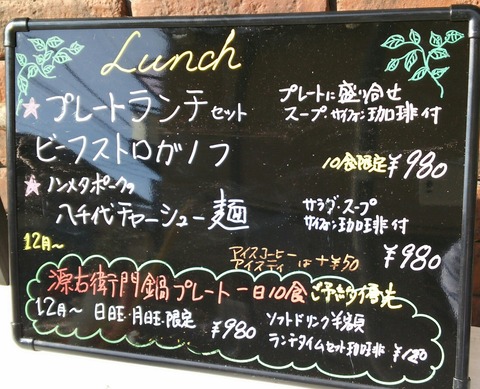 Lunch
プレートランチセット
プレートに盛り合せ
スープ サイフォン珈琲付
ビーフストロガノフ
10食限定 ¥980
ノンメタポークの
八千代チャーシュー麺
サラダ・スープ
サイフォン珈琲付
¥980
12月〜
アイスコーヒー
アイスティ は+¥50
源右衛門鍋プレート 一日10食 ご予約優先
12月〜 日曰・月曰限定 ¥980
ソフトドリンク半額
ランチタイムセット珈琲 ¥120